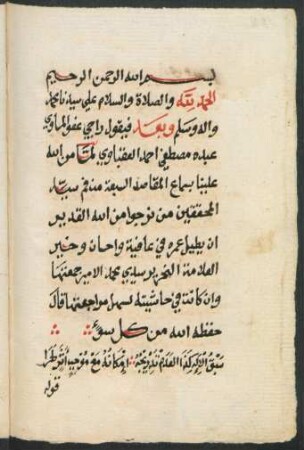 بسم الله الرحمن الرحيم
الحمد لله والصلاة والسلام على سيدنا محمد
واله وسلم وبعد فيقول راجي عفو المساوي
عبده مصطفى احمد العقباوي لما من الله
علينا بسماع المقاصد السبعة من فم سيد
المحققين من نرجوا من الله القدير
ان يطيل عمره في عافية واحسان وخير
العلامة النحرير سيدي محمد الامير جمعتها
وان كانت في حاشيته ليسهل مراجعتها قال
حفظه الله من كل سوء
سبق الاله كذا القدم
قوله